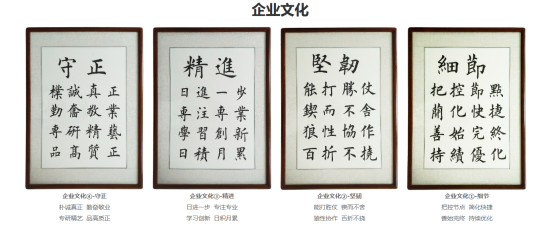 企业文化
守正
樸誠真正
勤奮敬業
專研精藝
品高質正
企业文化④-守正
朴诚真正 勤奋敬业
专研精艺 品高质正
精進
日進一步
專注專業
學習創新
日積月累
企业文化③-精进
日进一步 专注专业
学习创新 日积月累
堅韌
能打勝仗
鍥而不舍
狼性協作
百折不撓
企业文化②-坚韧
能打胜仗 锲而不舍
狼性协作 百折不挠
細節
把控節點
簡化快捷
善始完終
持續優化
企业文化①-细节
把控节点 简化快捷
善始完终 持续优化